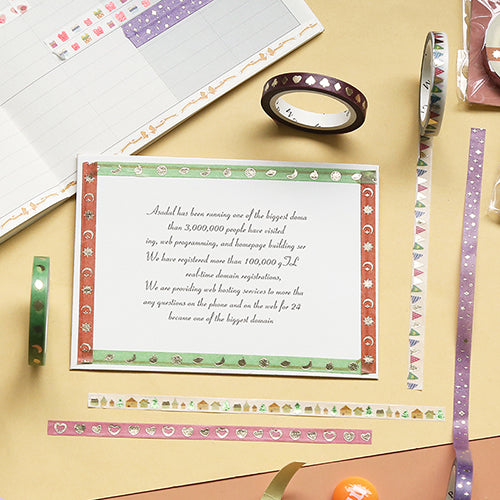 Asadal has been running one of the biggest doma
than 3,000,000 people have visited
ing, web programming, and homepage building ser
We have registered more than 100,000 gTL
real-time domain registrations,
We are providing web hosting services to more tha
any questions on the phone and on the web for 24
became one of the biggest domain